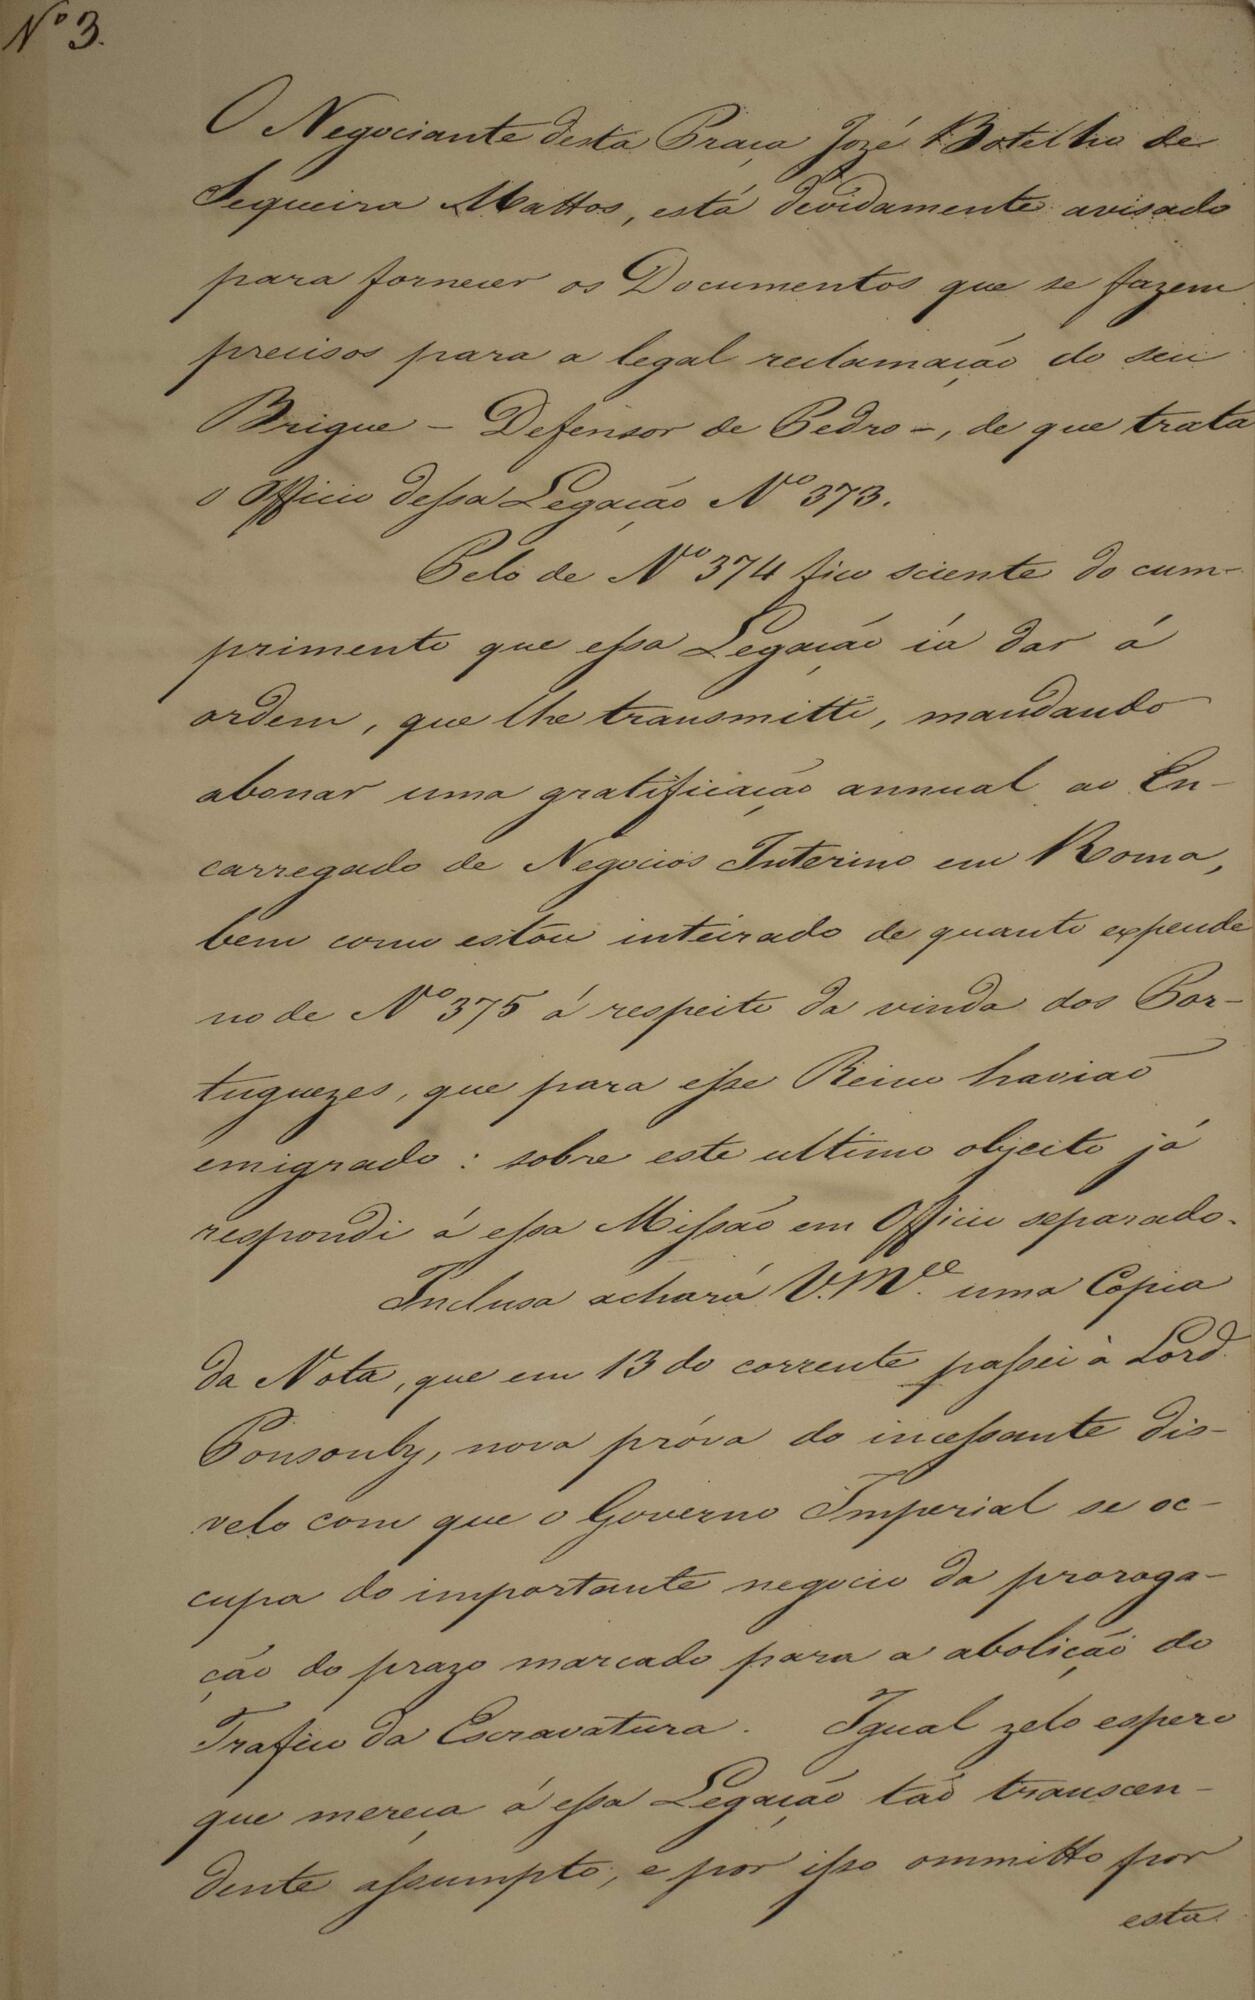 Nº 3.
O Negociante desta Praça Jozé Botelho de
Sequeira Mattos, está devidamente avisado
para fornecer os Documentos que se fazem
precisos para a legal reclamação do seu
Brigue - Defensor de Pedro -, de que trata
o Officio dessa Legação Nº 373.
Pelo de Nº 374 fico sciente do cum-
primento que essa Legação ía dar á
ordem, que lhe transmitti, mandando
abonar uma gratificação annual ao En-
carregado de Negocios Interino em Roma,
bem como estou inteirado de quanto expende
no de Nº 375 á respeito da vinda dos Por-
tuguezes, que para esse Reino haviaõ
emigrado: sobre este ultimo objecto já
respondi á essa Missão em Officio separado.
Inclusa achará V.Mce. uma Copia
da Nota, que em 13 do corrente passei à Lord
Ponsonby, nova próva do incessante dis-
velo com que o Governo Imperial se oc-
cupa do importante negocio da proroga-
ção do prazo marcado para a abolição do
Trafico da Escravatura. Igual zelo espero
que mereça á essa Legação taõ transcen-
dente assumpto, e por isso ommitto por
esta